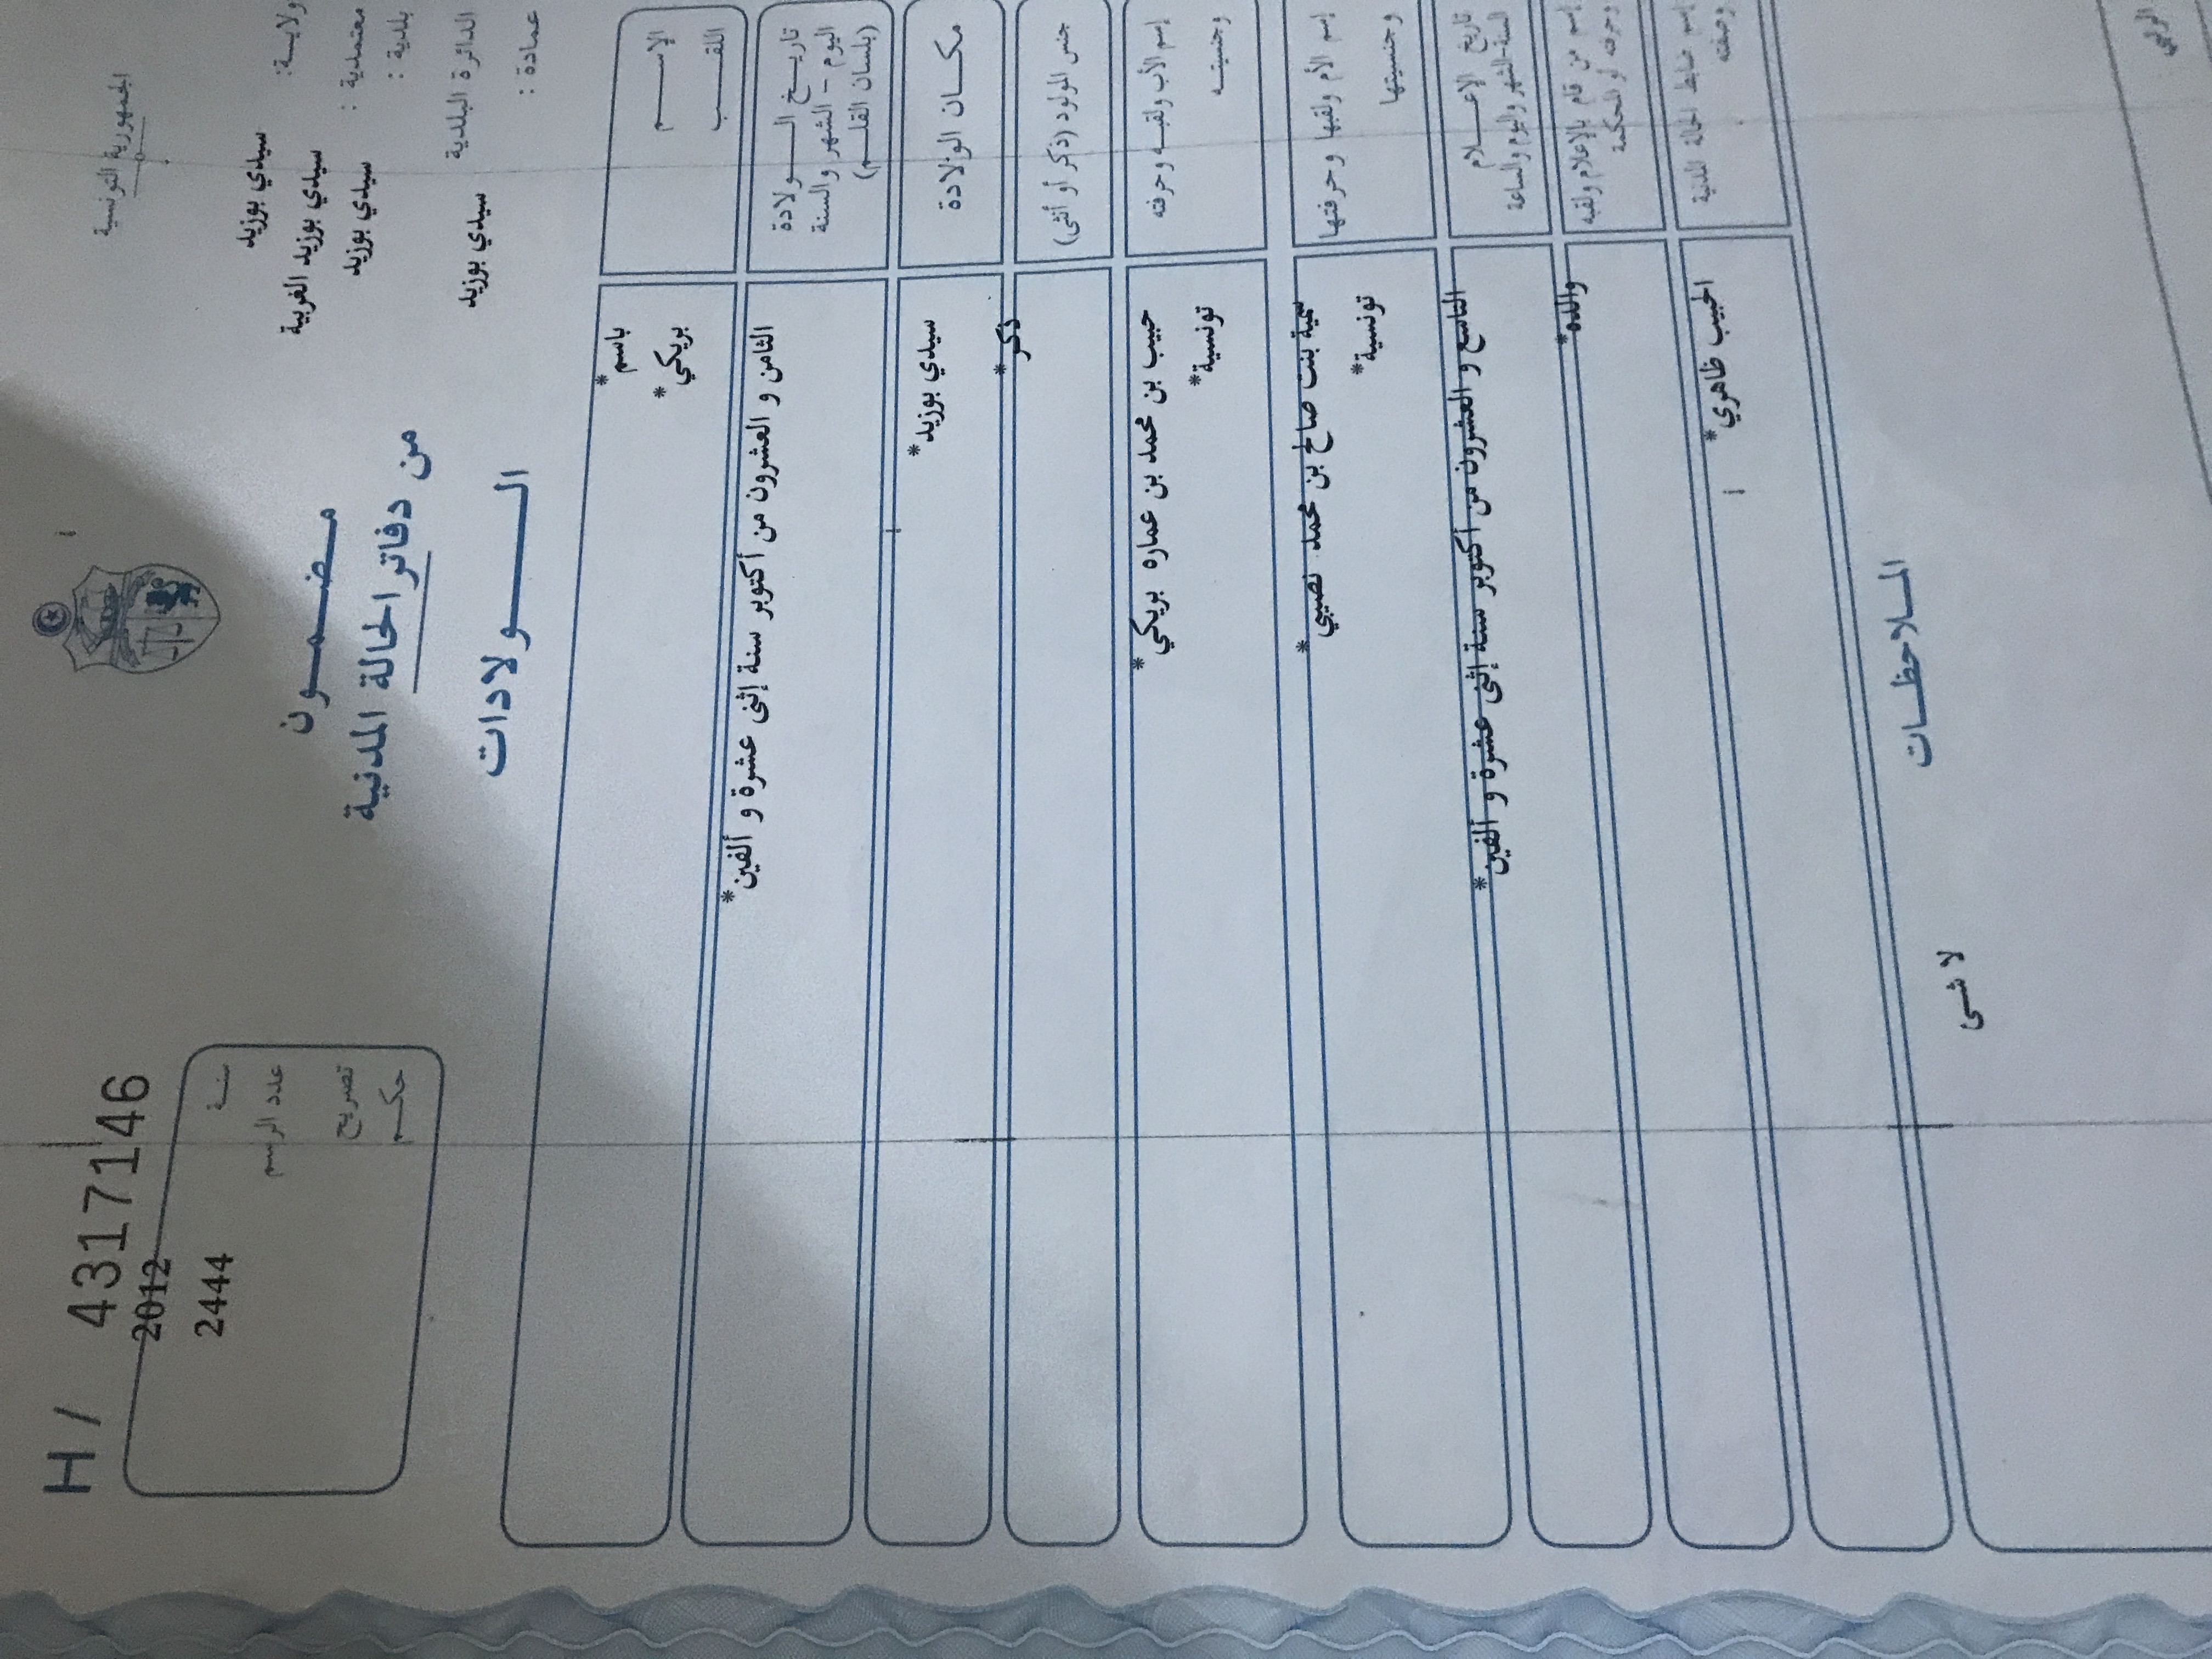 الجمهورية التونسية
ولايــة: سيدي بوزيد
معتمدية : سيدي بوزيد الغربية
بلدية : سيدي بوزيد
الدائرة البلدية سيدي بوزيد
عمادة :
مـضـمـــون
من دفاتر الحالة المدنية
الـــــولادات
H / 43171146
سنـــة 2012
عدد الرسم 2444
تصريح
حكــم
الإســـم باسم*
اللقـــب بريكي*
تاريــخ الـــولادة
اليوم - الشهر والسنة
(بلسان القلـــم)
الثامن و العشرون من أكتوبر سنة إثنى عشرة و ألفين*
مكــان الولادة سيدي بوزيد*
جنس المولود (ذكر أو أنثى) ذكر*
إسم الأب ولقبــه وحرفته
وجنسيتــه
حبيب بن محمد بن عماره بريكي*
تونسية*
إسم الأم ولقبها وحرفتها
وجنسيتها
سمية بنت صالح بن محمد نصيبي*
تونسية*
تاريخ الإعـــلام
السنة-الشهر واليوم والساعة
التاسع و العشرون من أكتوبر سنة إثنى عشرة و ألفين*
إسم من قام بالإعلام ولقبه
وحرفته أو المحكمة
والده*
إسم ضابط الحالة المدنية
وصفته
الحبيب ظاهري*
المــلاحظــات
لا شـى